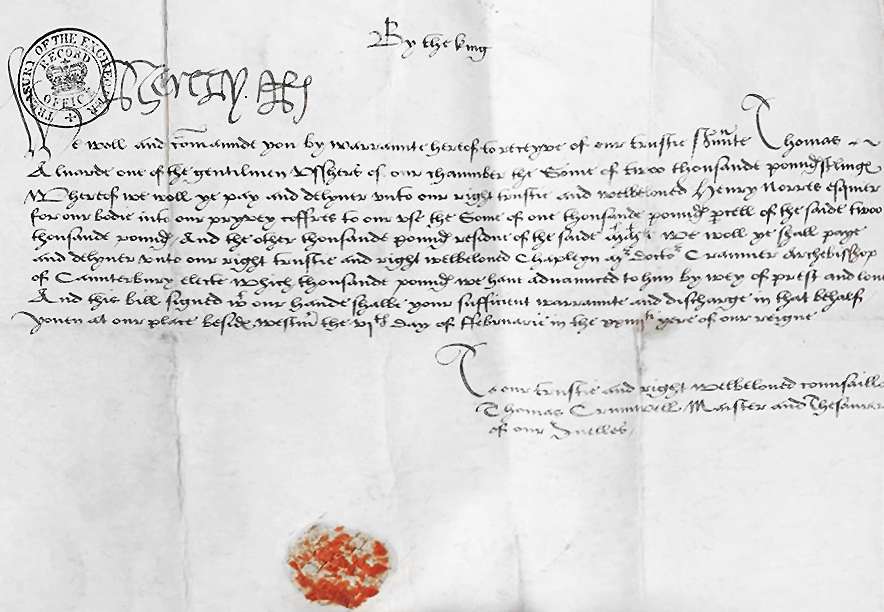 By the king
TREASURY OF THE EXCHEQUER
RECORD
OFFICE
Henry R
We woll and comaunde you by warraunte hereof to receyve of our trustie s'unte Thomas
Aluarde one of the gentilmen Vsshers of our chaumber the Some of twoo thousande pound
Whereof we woll ye pay and delyuer vnto our right trustie and welbeloued Henry Norres esquier
for our bodie into our pryvey coffres to our vse the Some of one thousande pound p'cell of the saide twoo
thousande pound, And the other thousande pound residue of the saide We woll ye shall paye
and delyuer vnto our right trustie and right welbeloued Chapleyn Doctor Cranmer Archebisshop
of Caunterbury electe which thousande pound we haue aduaunced to him by wey of prest and lone
And this bill signed wt our hande shalbe your sufficient warraunte and discharge in that behalf
Yeuen at our place beside westm' the vith Day of ffebruarie in the xxiiiith yere of our reigne
To our trustie and right welbeloued counsaill
Thomas Crumwell Maister and Thesaurer
of our Juelles